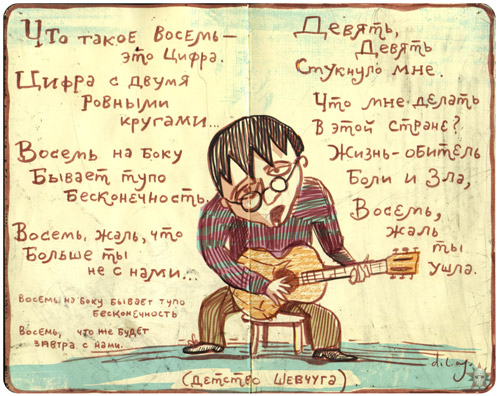 Что такое Восемь –
это Цифра.
Цифра с двумя
Ровными
кругами...
Восемь на боку
Бывает тупо
Бесконечность.
Восемь, жаль, что
Больше ты
не с нами...
Восемь на боку бывает тупо
бесконечность
Восемь, что же будет
завтра с нами.
Девять,
Девять
Стукнуло мне.
Что мне делать
В этой стране?
Жизнь-обитель
Боли и Зла,
Восемь,
жаль
ты
Ушла.
(Детство Шевчуга)